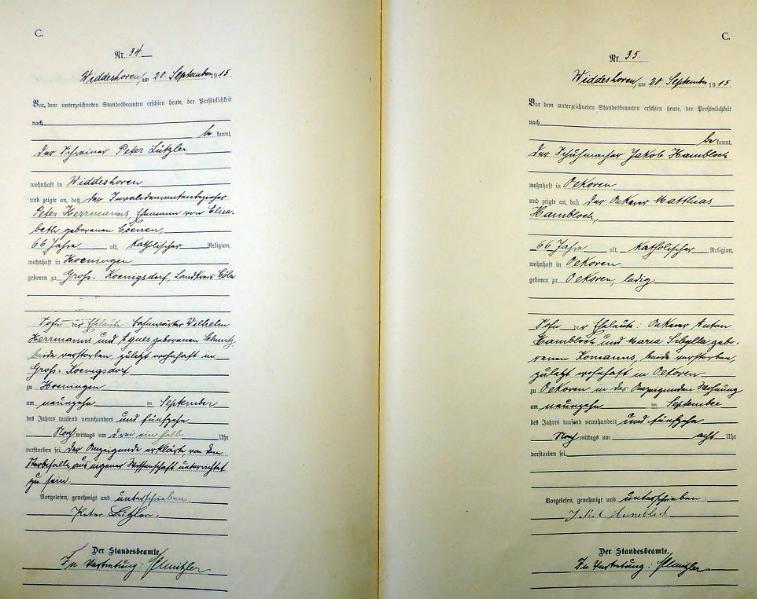 C.
Nr. 34
Widdeshoven, am 20. September 1915.
Vor dem unterzeichneten Standesbeamten erschien heute, der Persönlichkeit
nach
be kannt,
der Schreiner Peter Lützler
wohnhaft in Widdeshoven
und zeigte an, daß der Invalidenrentenbezieher
Peter Herrmanns, Ehemann von Elisa-
beth geborenen Coenen,
66 Jahre alt, katholischer Religion,
wohnhaft in Hoeningen
geboren zu Groß. Koenigsdorf, Landkreis Cöln
Sohn der Eheleute: Bahnwärter Wilhelm
Herrmanns und Agnes geborenen
beide verstorben, zuletzt wohnhaft in
Groß. Koenigsdorf
zu Hoeningen
am neunzehn ten September
des Jahres tausend neunhundert und fünfzehn
Nach mittags um drei einhalb Uhr
verstorben sei. Der Anzeigende erklärte, von dem
Sterbefalle aus eigener Wissenschaft unterrichtet
zu sein.
Vorgelesen, genehmigt und unterschrieben
Peter Lützler.
Der Standesbeamte.
In Vertretung:
C.
Nr. 35.
Widdeshoven, am 20 September 1915
Vor dem unterzeichneten Standesbeamten erschien heute, der Persönlichkeit
nach
be kannt,
der Schuhmacher Jakob Hambloch
wohnhaft in Oekoven
und zeigte an, daß der Ackerer Matthias
Hambloch,
66 Jahre alt, katholischer Religion,
wohnhaft in Oekoven
geboren zu Oekoven, ledig.
Sohn der Eheleute: Ackerer Anton
Hambloch und Maria Sibylla gebo-
renen Komanns, beide verstorben,
zuletzt wohnhaft in Oekoven
zu Oekoven in der Anzeigenden Wohnung
am neunzehn ten September
des Jahres tausend neunhundert und fünfzehn
Nach mittags um acht Uhr
verstorben sei.
Vorgelesen, genehmigt und unterschrieben
Jakob Hambloch
Der Standesbeamte.
In Vertretung: